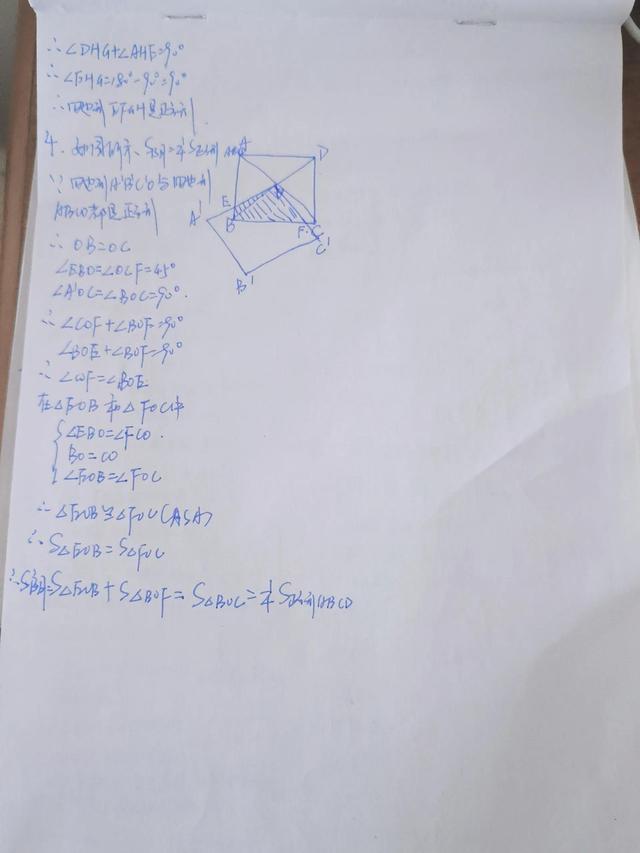 ∴∠DHG+∠AHE=90°
∴∠EHG=180°-90°=90°
∴四边形EFGH是正方形
4. 如图所示、S阴=¼S正方形ABCD
∵四边形A'B'C'O与四边形
ABCD都是正方形
∴OB=OC
∠EBO=∠OCF=45°
∠A'OC'=∠BOC=90°.
∴∠COF+∠BOF=90°
∠BOE+∠BOF=90°
∴∠COF=∠BOE
在△EOB和△FOC中
∠EBO=∠FCO.
BO=CO
∠EOB=∠FOC
∴△EOB≌△FOC(ASA)
∴S△EOB=S△FOC
∴S阴=S△EOB+S△BOF=S△BOC=¼S正方形ABCD
A
D
E
A'
B
F
C
C'
B'